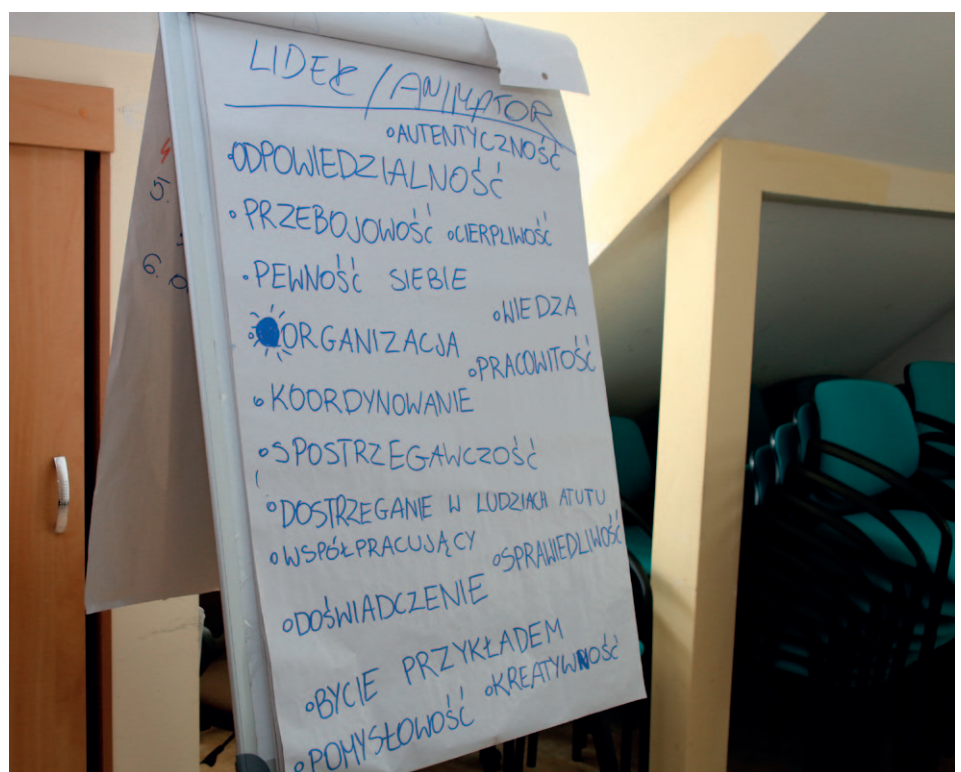 LIDER/ANIMATOR
•AUTENTYCZNOŚĆ
•ODPOWIEDZIALNOŚĆ
•PRZEBOJOWOŚĆ •CIERPLIWOŚĆ
•PEWNOŚĆ SIEBIE
•WIEDZA
•ORGANIZACJA
•PRACOWITOŚĆ
•KOORDYNOWANIE
•SPOSTRZEGAWCZOŚĆ
•DOSTRZEGANIE W LUDZIACH ATUTU
•WSPÓŁPRACUJĄCY •SPRAWIEDLIWOŚĆ
•DOŚWIADCZENIE
•BYCIE PRZYKŁADEM
•KREATYWNOŚĆ
•POMYSŁOWOŚĆ
5.
6.